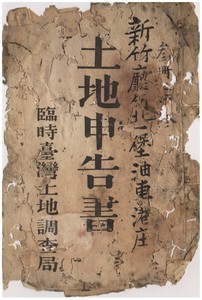 新竹廳竹北一堡油車港庄
土地申告書
臨時臺灣土地調查局